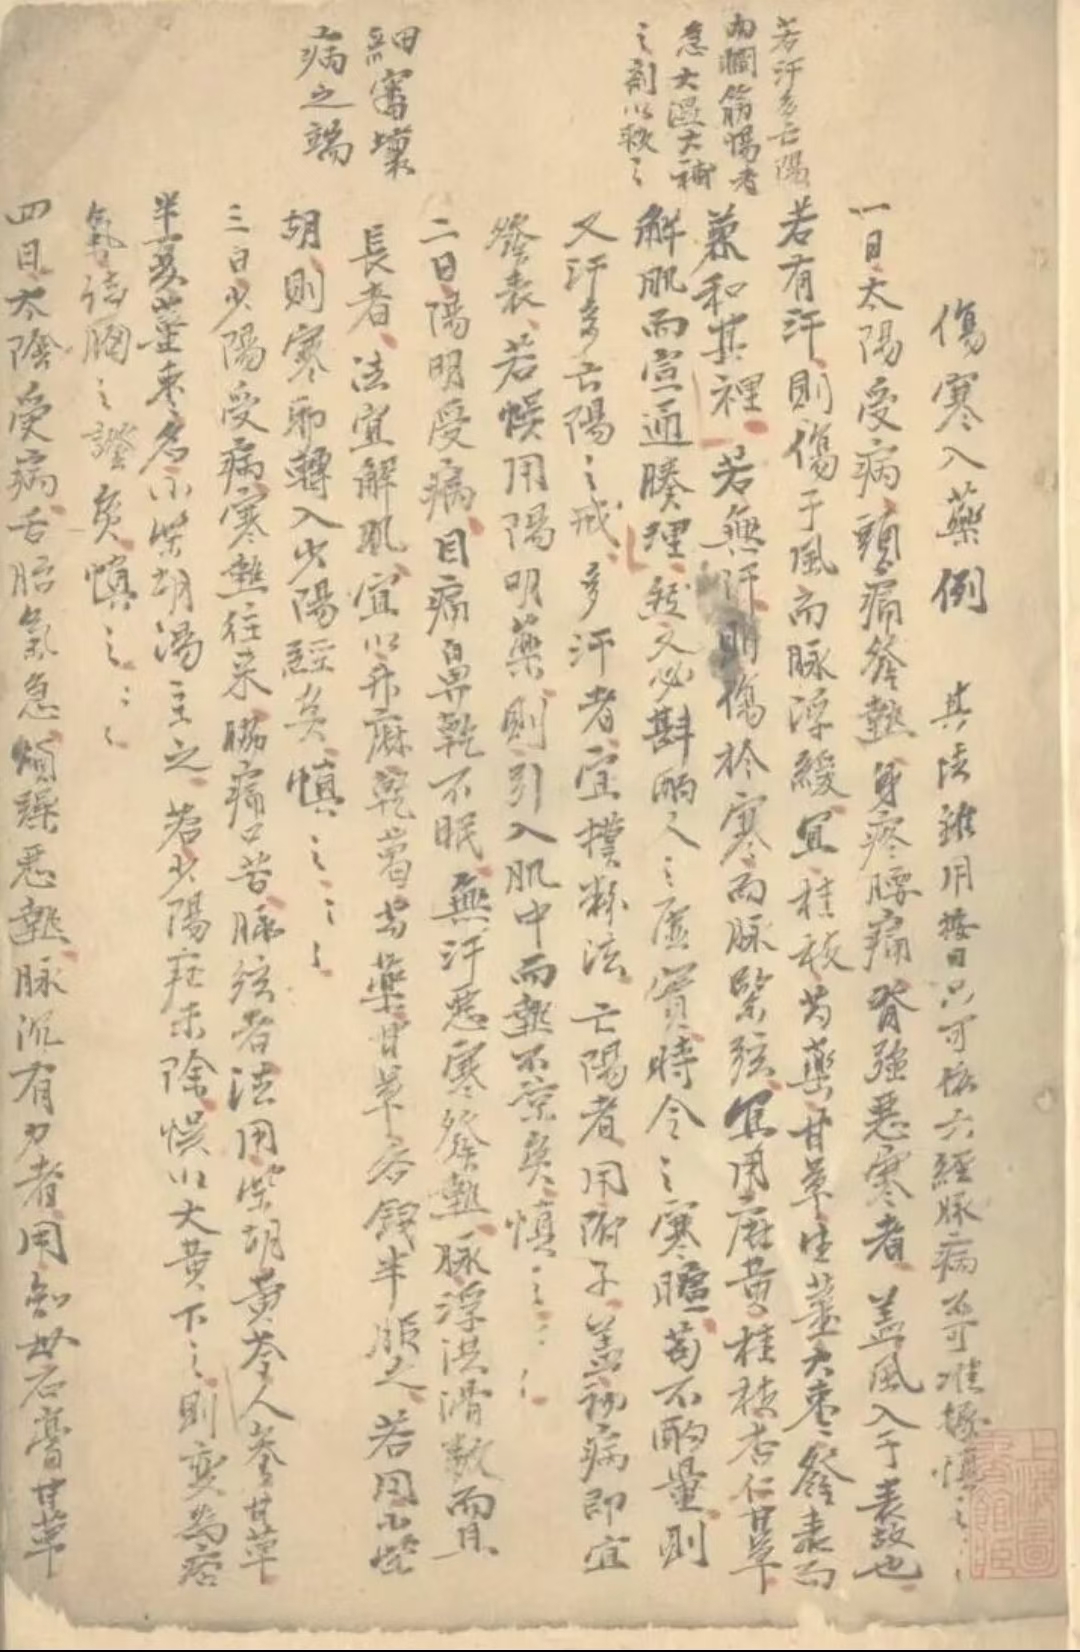 傷寒入藥例　其法雖用按日只可依六經脉病𦤺可准據慎之〻〻
一日太陽受病頭痛發熱身疼腰痛脊强惡寒者盖風入于表故也
若有汗則傷于風而脉浮緩宜桂枝芍藥甘草生薑大棗發表而
兼和其裡若無汗則傷於寒而脉緊弦宜用麻黄桂枝杏仁甘草
解肌而宣通腠理然又必斟酌人之虛實時令之寒暄苟不酌量則
又汗多亡陽之戒多汗者宜撲粉法亡陽者用附子盖初病即宜
發表若悞用陽明藥則引入肌中而熱不凉矣慎之〻〻
二日陽明受病目痛鼻乾不眠無汗惡寒發熱脉浮洪滑數而
長者法宜解肌宜以升麻乾葛芍藥甘草各錢半服之若用小柴
胡則寒邪轉入少陽經矣慎之〻〻
三日少陽受病寒熱往来脇痛口苦脉弦者法用柴胡黄芩人參甘草
半夏薑棗名小柴胡湯主之若少陽症未除悞以大黄下之則變為痞
氣結胸之證矣慎之〻〻
四日太陰受病舌 氣急煩躁惡熱脉沉有力者用知母石膏甘草
若汗多亡陽
肉瞤筋惕者
急大溫大補
之劑以救之
細審壞
病之端
上海圖
書館藏